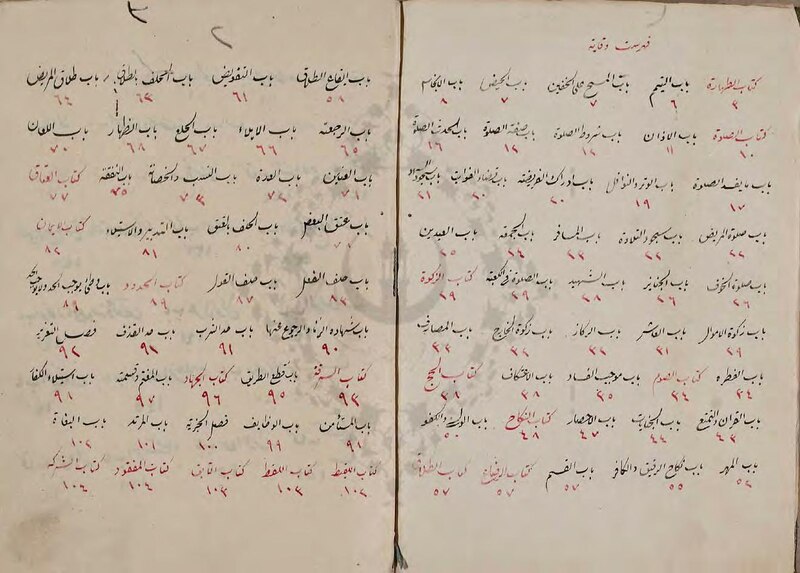 فهرست وقاية
كتاب الطهارة باب التيمم باب المسح على الخفين باب الحيض باب الانجاس
٣ ٦ ٧ ٧ ٨
كتاب الصلوة باب الاذان باب شروط الصلوة باب صفة الصلوة باب الحدث فى الصلوة
١٠ ١١ ١٢ ١٣ ١٦
باب ما يفسد الصلوة باب الوتر والنوافل باب ادراك الفريضة باب قضاء الفوائت باب سجود السهو
١٧ ١٩ ٢٠ ٢٠ ٢١
باب صلوة المريض باب سجود التلاوة باب المسافر باب الجمعه باب العيدين
٢٢ ٢٢ ٢٣ ٢٤ ٢٥
باب صلوة الخوف باب الجنايز باب الشهيد باب الصلوة فى الكعبة كتاب الزكوة
٢٦ ٢٦ ٢٨ ٢٩ ٢٩
باب زكوة الاموال باب العاشر باب الركاز باب زكوة الخارج باب المصارف
٢٩ ٣١ ٣٢ ٣٢ ٣٣
باب الفطره كتاب الصوم باب موجب الفساد باب الاعتكاف كتاب الحج
٣٤ ٣٤ ٣٥ ٣٨ ٣٨
باب القران والتمتع باب الجنايات باب الاحصار كتاب النكاح باب الولى والكفو
٤٣ ٤٤ ٤٧ ٤٨ ٥٠
باب المهر باب نكاح الرقيق والكافر باب القسم كتاب الرضاع كتاب الطلاق
٥٢ ٥٥ ٥٧ ٥٧ ٥٧
باب ايقاع الطلاق باب التفويض باب الحلف بالطلاق باب طلاق المريض
٥٨ ٦١ ٦٣ ٦٤
باب الرجعة باب الايلاء باب الخلع باب الظهار باب اللعان
٦٥ ٦٦ ٦٧ ٦٨ ٧٠
باب العنين باب العدة باب النسب والحضانة باب النفقة كتاب العتاق
٧١ ٧٢ ٧٣ ٧٥ ٧٧
باب عتق البعض باب الحلف بالعتق باب التدبير والاستيلاد كتاب الايمان
٨٠ ٨١ ٨٢
باب حلف الفعل باب حلف القول كتاب الحدود باب وطئ يوجب الحد
٨٣ ٨٧ ٨٩ ٨٩
باب شهادة الزناء والرجوع عنها باب حد الشرب باب حد القذف فصل التعزير
٩٠ ٩١ ٩١ ٩٢
كتاب السرقة باب قطع الطريق كتاب الجهاد باب المغنم وقسمته باب استيلاء الكفار
٩٣ ٩٥ ٩٦ ٩٧ ٩٨
باب المستأمن باب الوظايف فصل الجزية باب المرتد باب البغاة
٩٩ ١٠٠ ١٠١ ١٠٢
كتاب اللقيط كتاب اللقطة كتاب الآبق كتاب المفقود كتاب الشركه
١٠٣ ١٠٣ ١٠٣ ١٠٤ ١٠٤